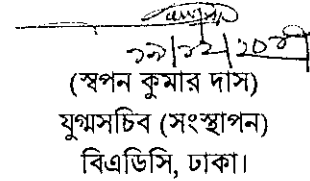 (স্বপন কুমার দাস)
যুগ্মসচিব (সংস্থাপন)
বিএডিসি, ঢাকা।